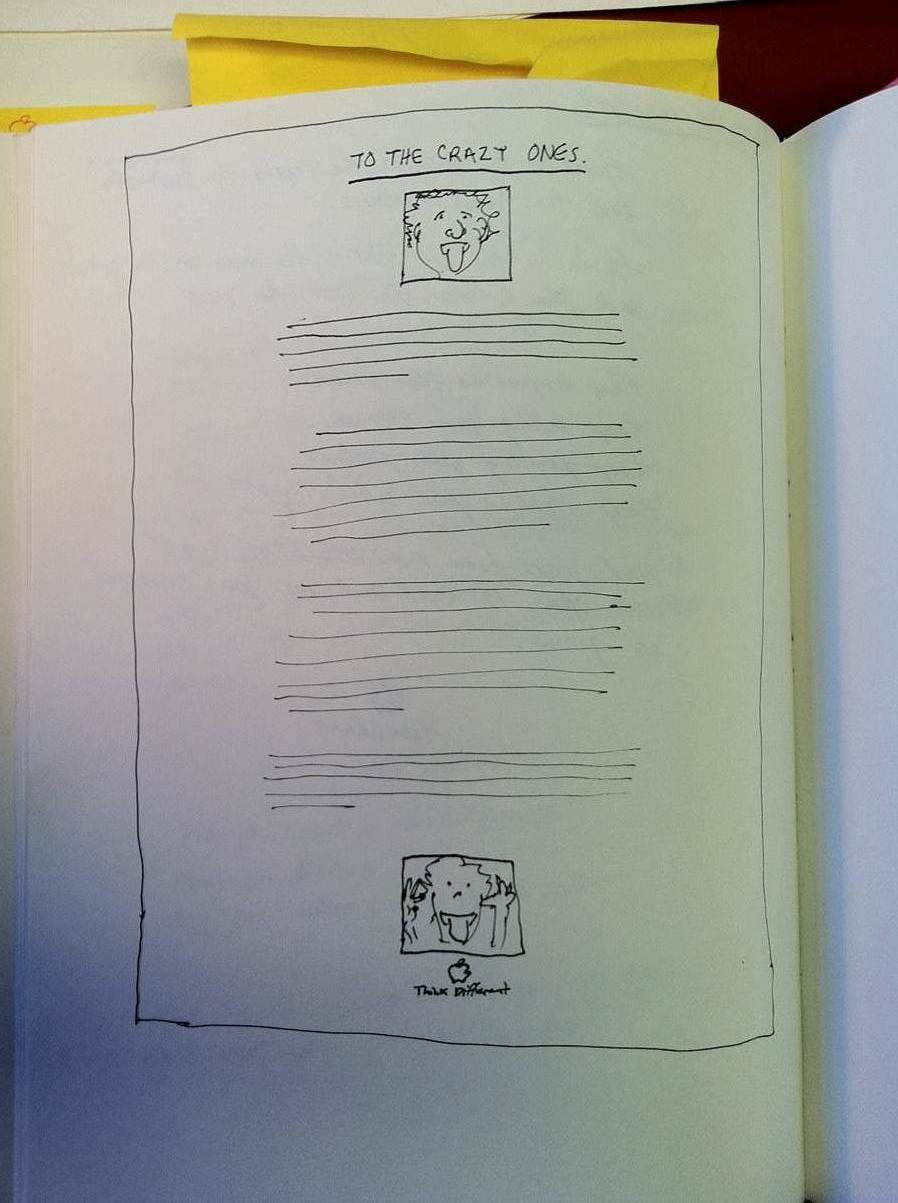 TO THE CRAZY ONES.
Think Different